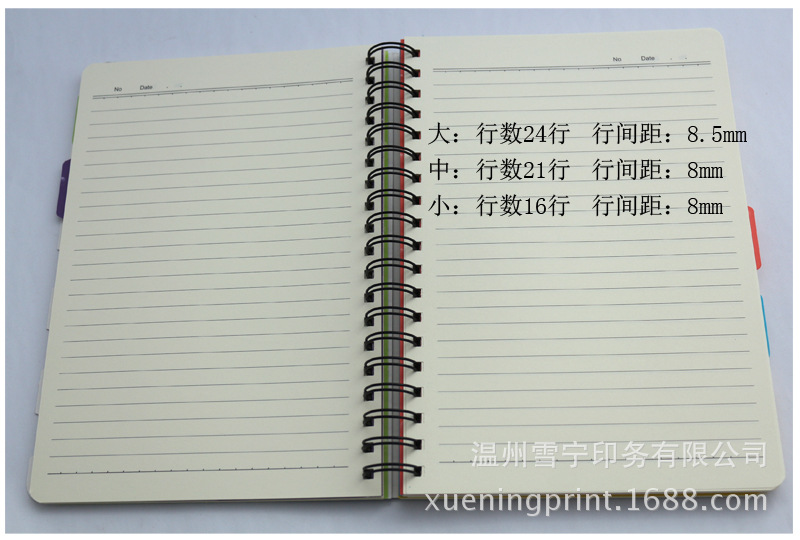 No Date
No Date
大：行数24行 行间距：8.5mm
中：行数21行 行间距：8mm
小：行数16行 行间距：8mm
温州雪宁印务有限公司
xueningprint.1688.com